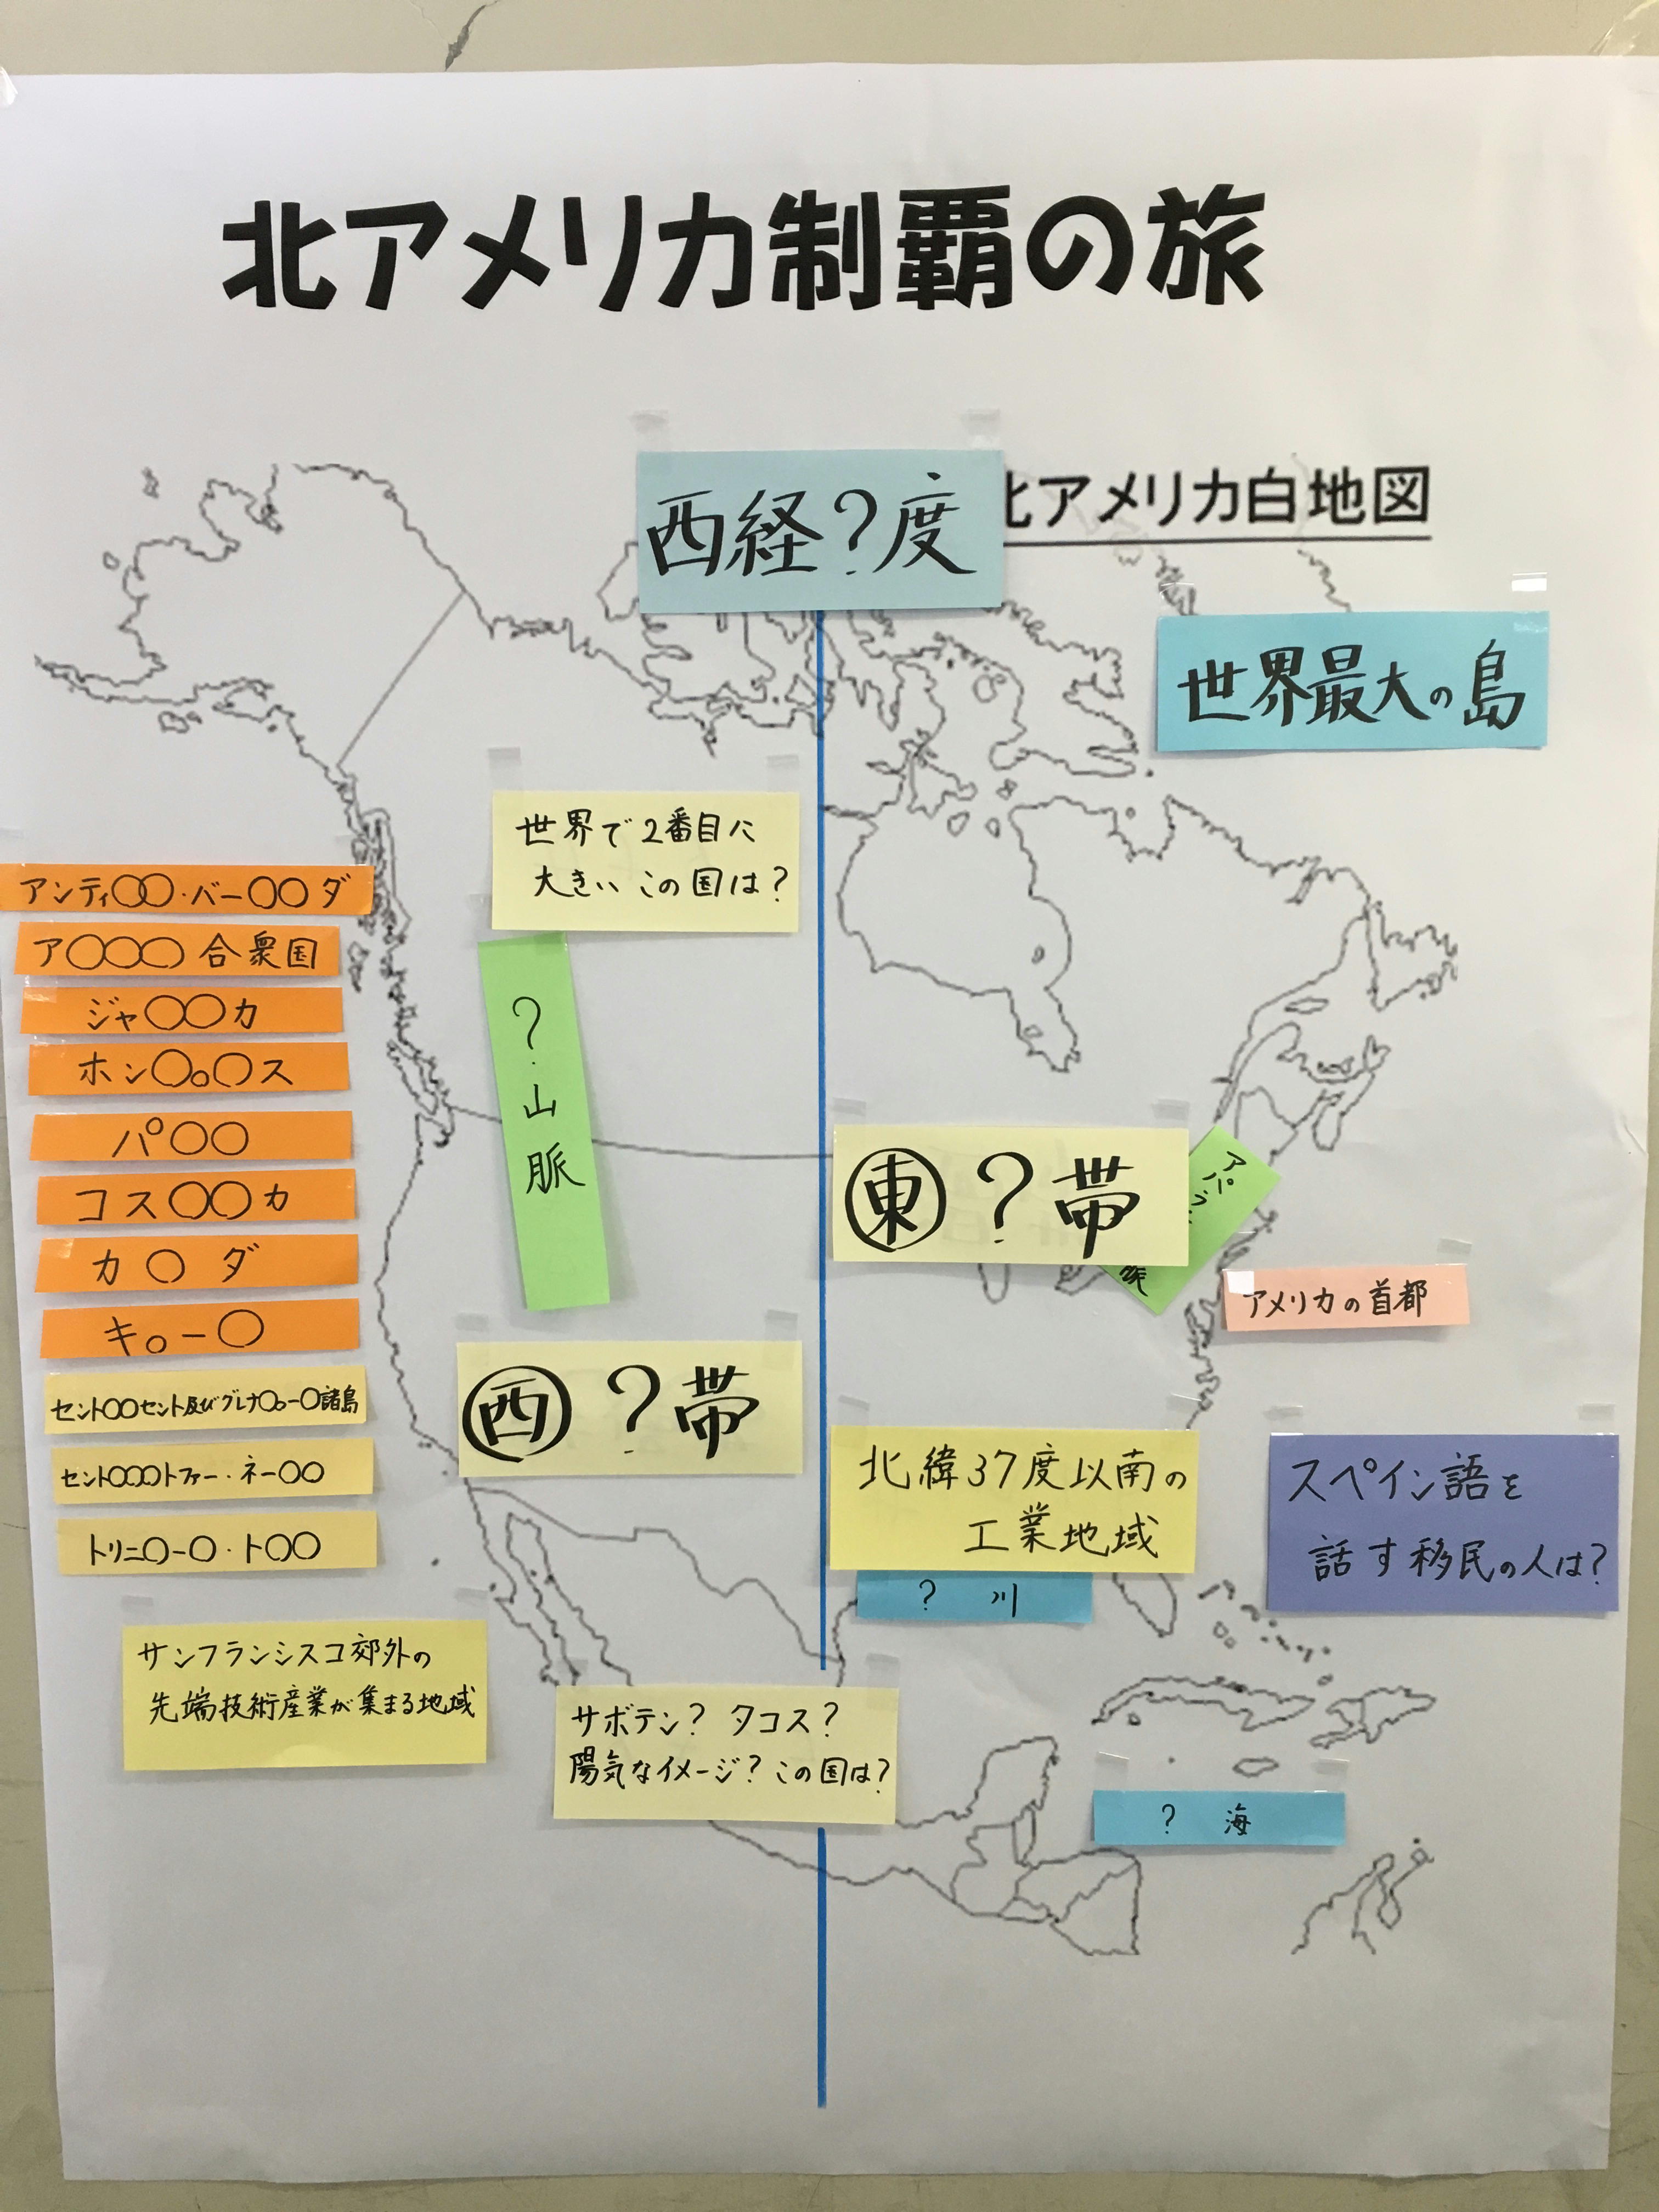 北アメリカ制覇の旅
西経?度
北アメリカ白地図
世界最大の島
世界で2番目に
大きい この国は?
アンティ〇〇・バー〇〇ダ
ア〇〇〇合衆国
ジャ〇〇カ
ホン〇。〇ス
パ〇〇
コス〇〇カ
カ〇ダ
キ。ー〇
セント〇〇セント及びグレナ〇。ー〇諸島
セント〇〇〇トファー・ネー〇〇
トリニ〇ー〇・ト〇〇
?山脈
東?帯
アパラ
脈
アメリカの首都
西?帯
北緯37度以南の
工業地域
?川
スペイン語を
話す移民の人は?
サンフランシスコ郊外の
先端技術産業が集まる地域
サボテン? タコス?
陽気なイメージ? この国は?
?海